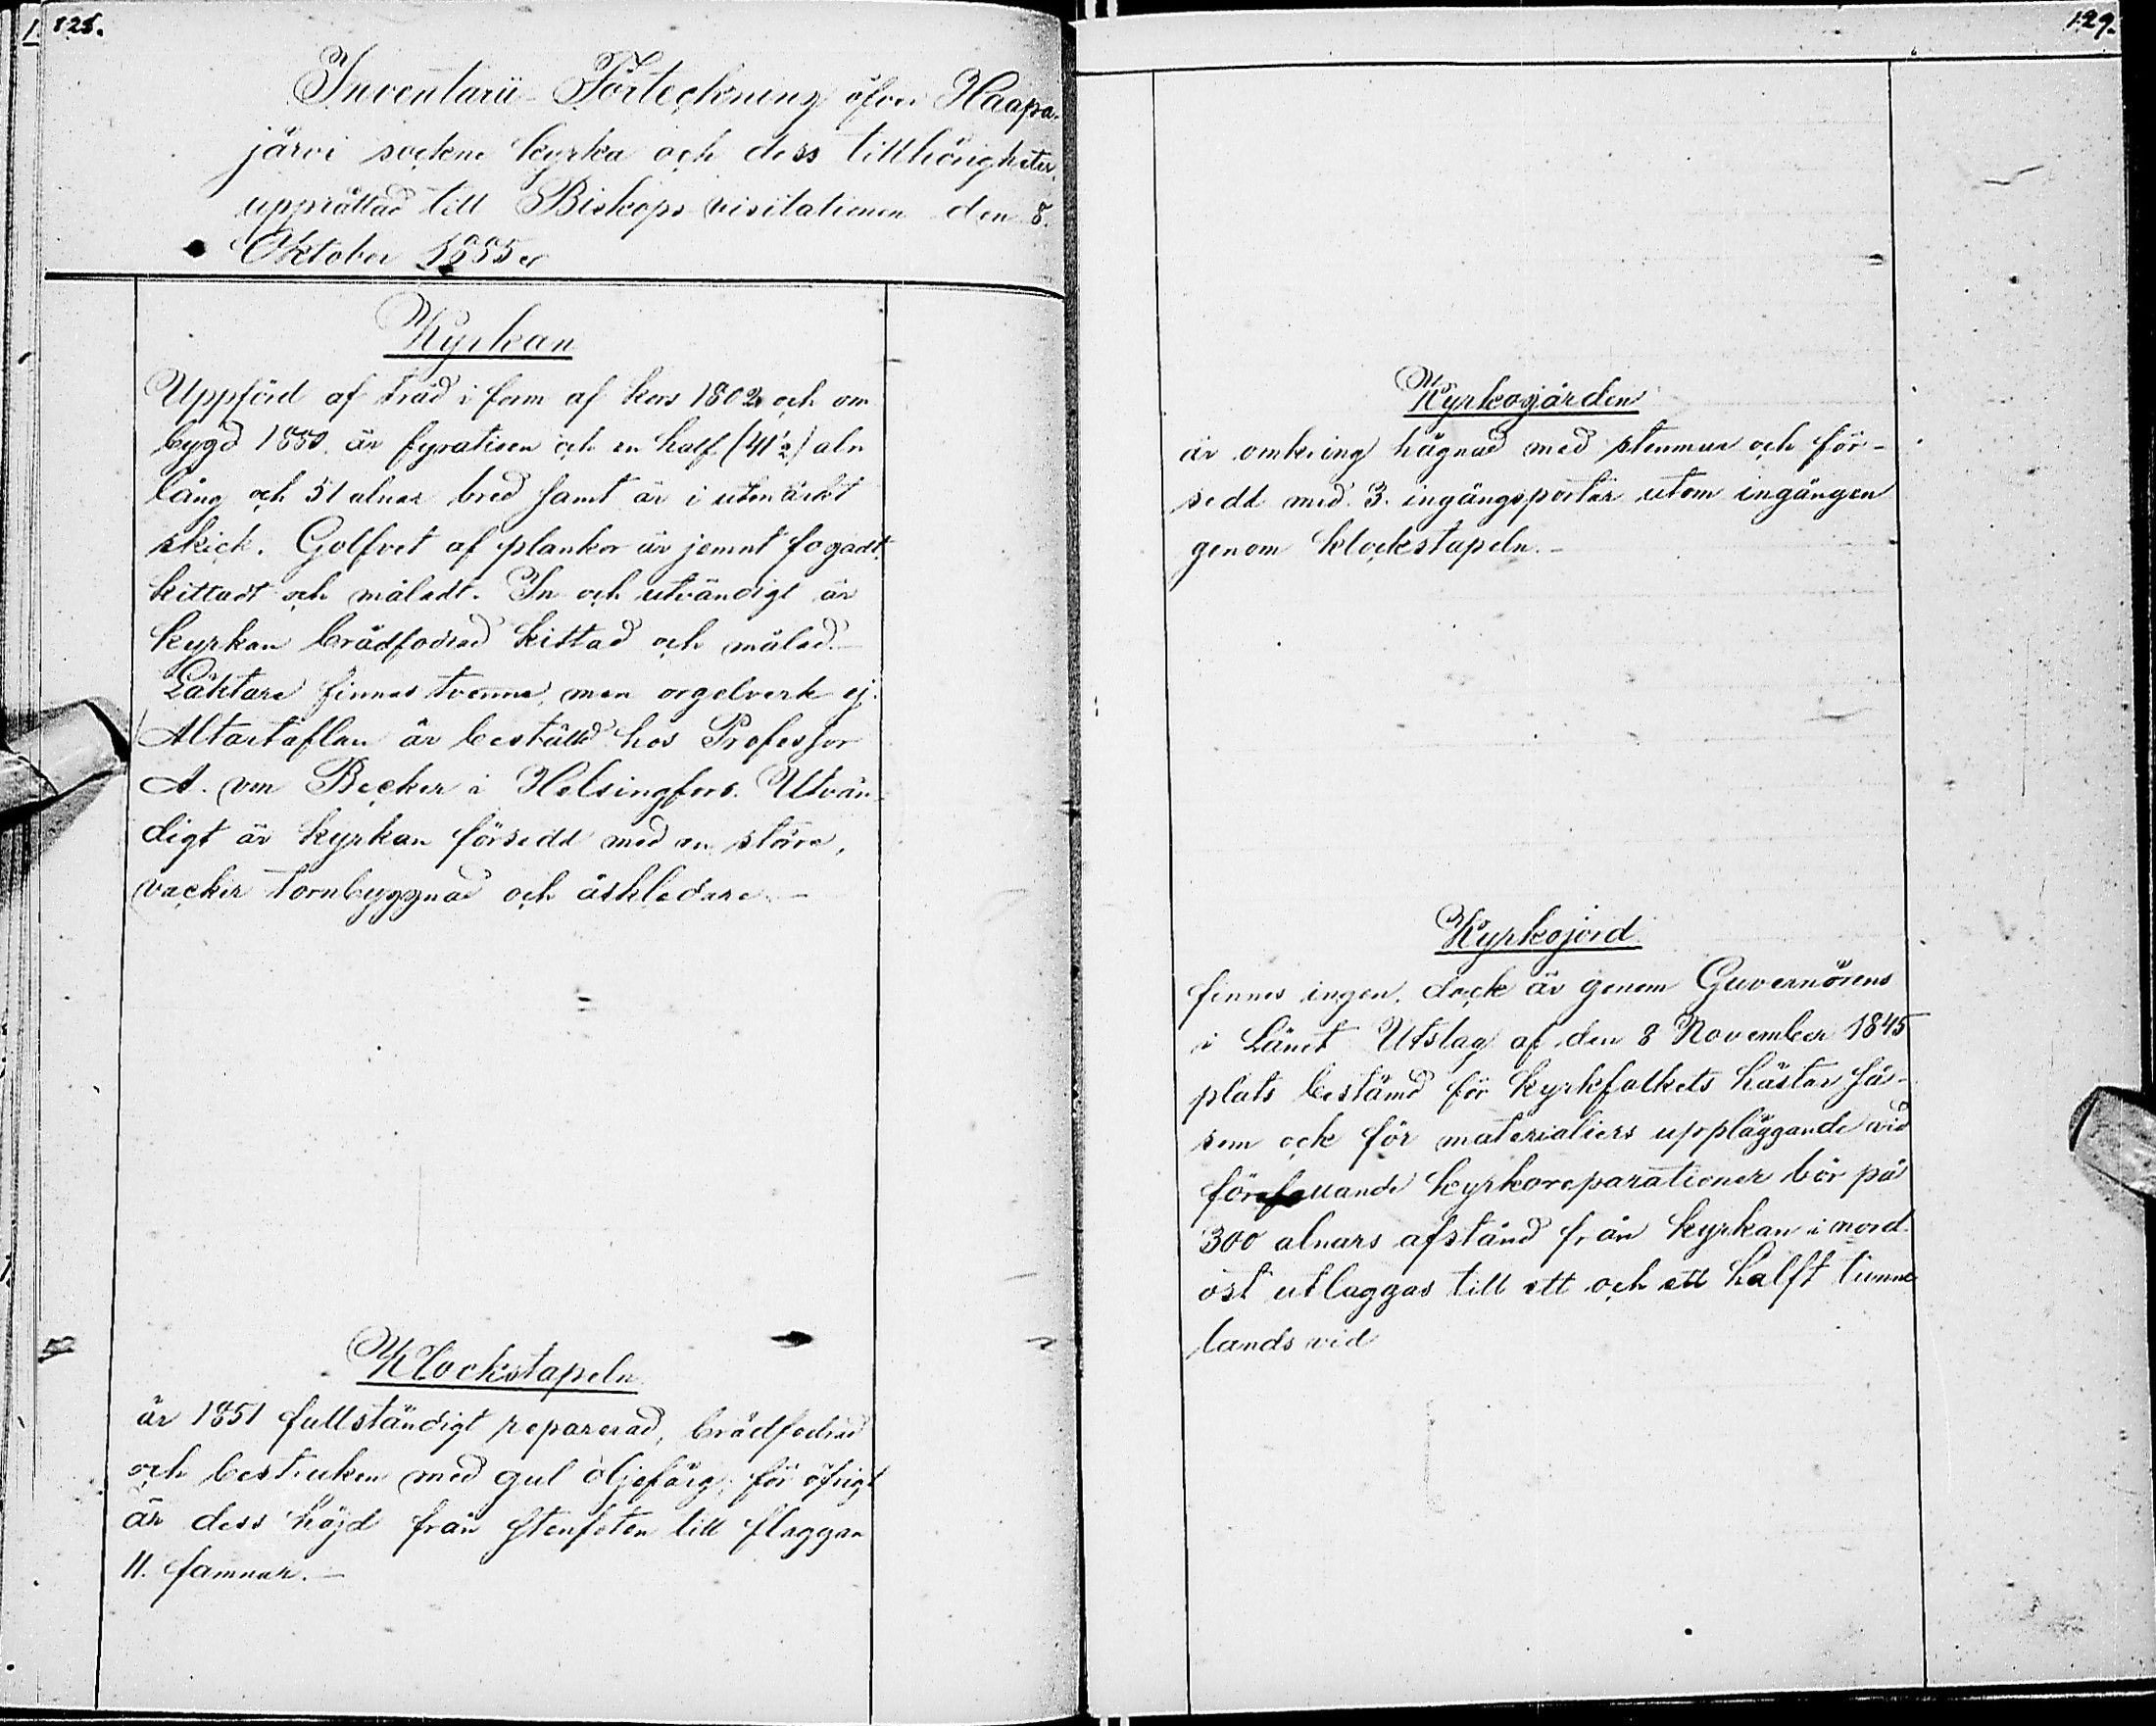 128.
Inventarii-Förteckning öfver Haapa-
järvi sockne kyrka och dess tillhörigheter,
upprättad till Biskops visitationen den 8.
Oktober 1885
Kyrkan
Uppförd af träd i form af kors 1802 och om
bygd 1880. är fyratien och en half (41 1/2) aln
lång och 51 alnar bred samt är i utmärkt
skick. Golfvet af plankor är jemnt fogadt,
kittadt och måladt. In och utvändigt är
kyrkan brädfodrad kittad och målad.-
Läktare finnas tvenne, men orgelverk ej.
Altartaflan är beställd hos Professor
A. von Becker i Helsingfors. Utvän-
digt är kyrkan försedd med en större,
vacker tornbyggnad och åskledare.-
Klockstapeln
är 1851 fullständigt reparerad, brädfodrad
och bestruken med gul oljefärg; för öfrigt
är dess höjd från stenfoten till flaggan
11. famnar.-
129.
Kyrkogården
är omkring hägnad med stenmur och för-
sedd med 3. ingångsportar utom ingången
genom klockstapeln.-
Kyrkojord
finnes ingen, dock är genom Guvernörens
i Länet Utslag af den 8 November 1845
plats bestämd för kyrkfolkets hästar så-
som ock för materialiers uppläggande vid
förefallande kyrkoreparationer bör på
300 alnars afstånd från kyrkan i nord-
ost utläggas till ett och ett halft tunne
lands vid